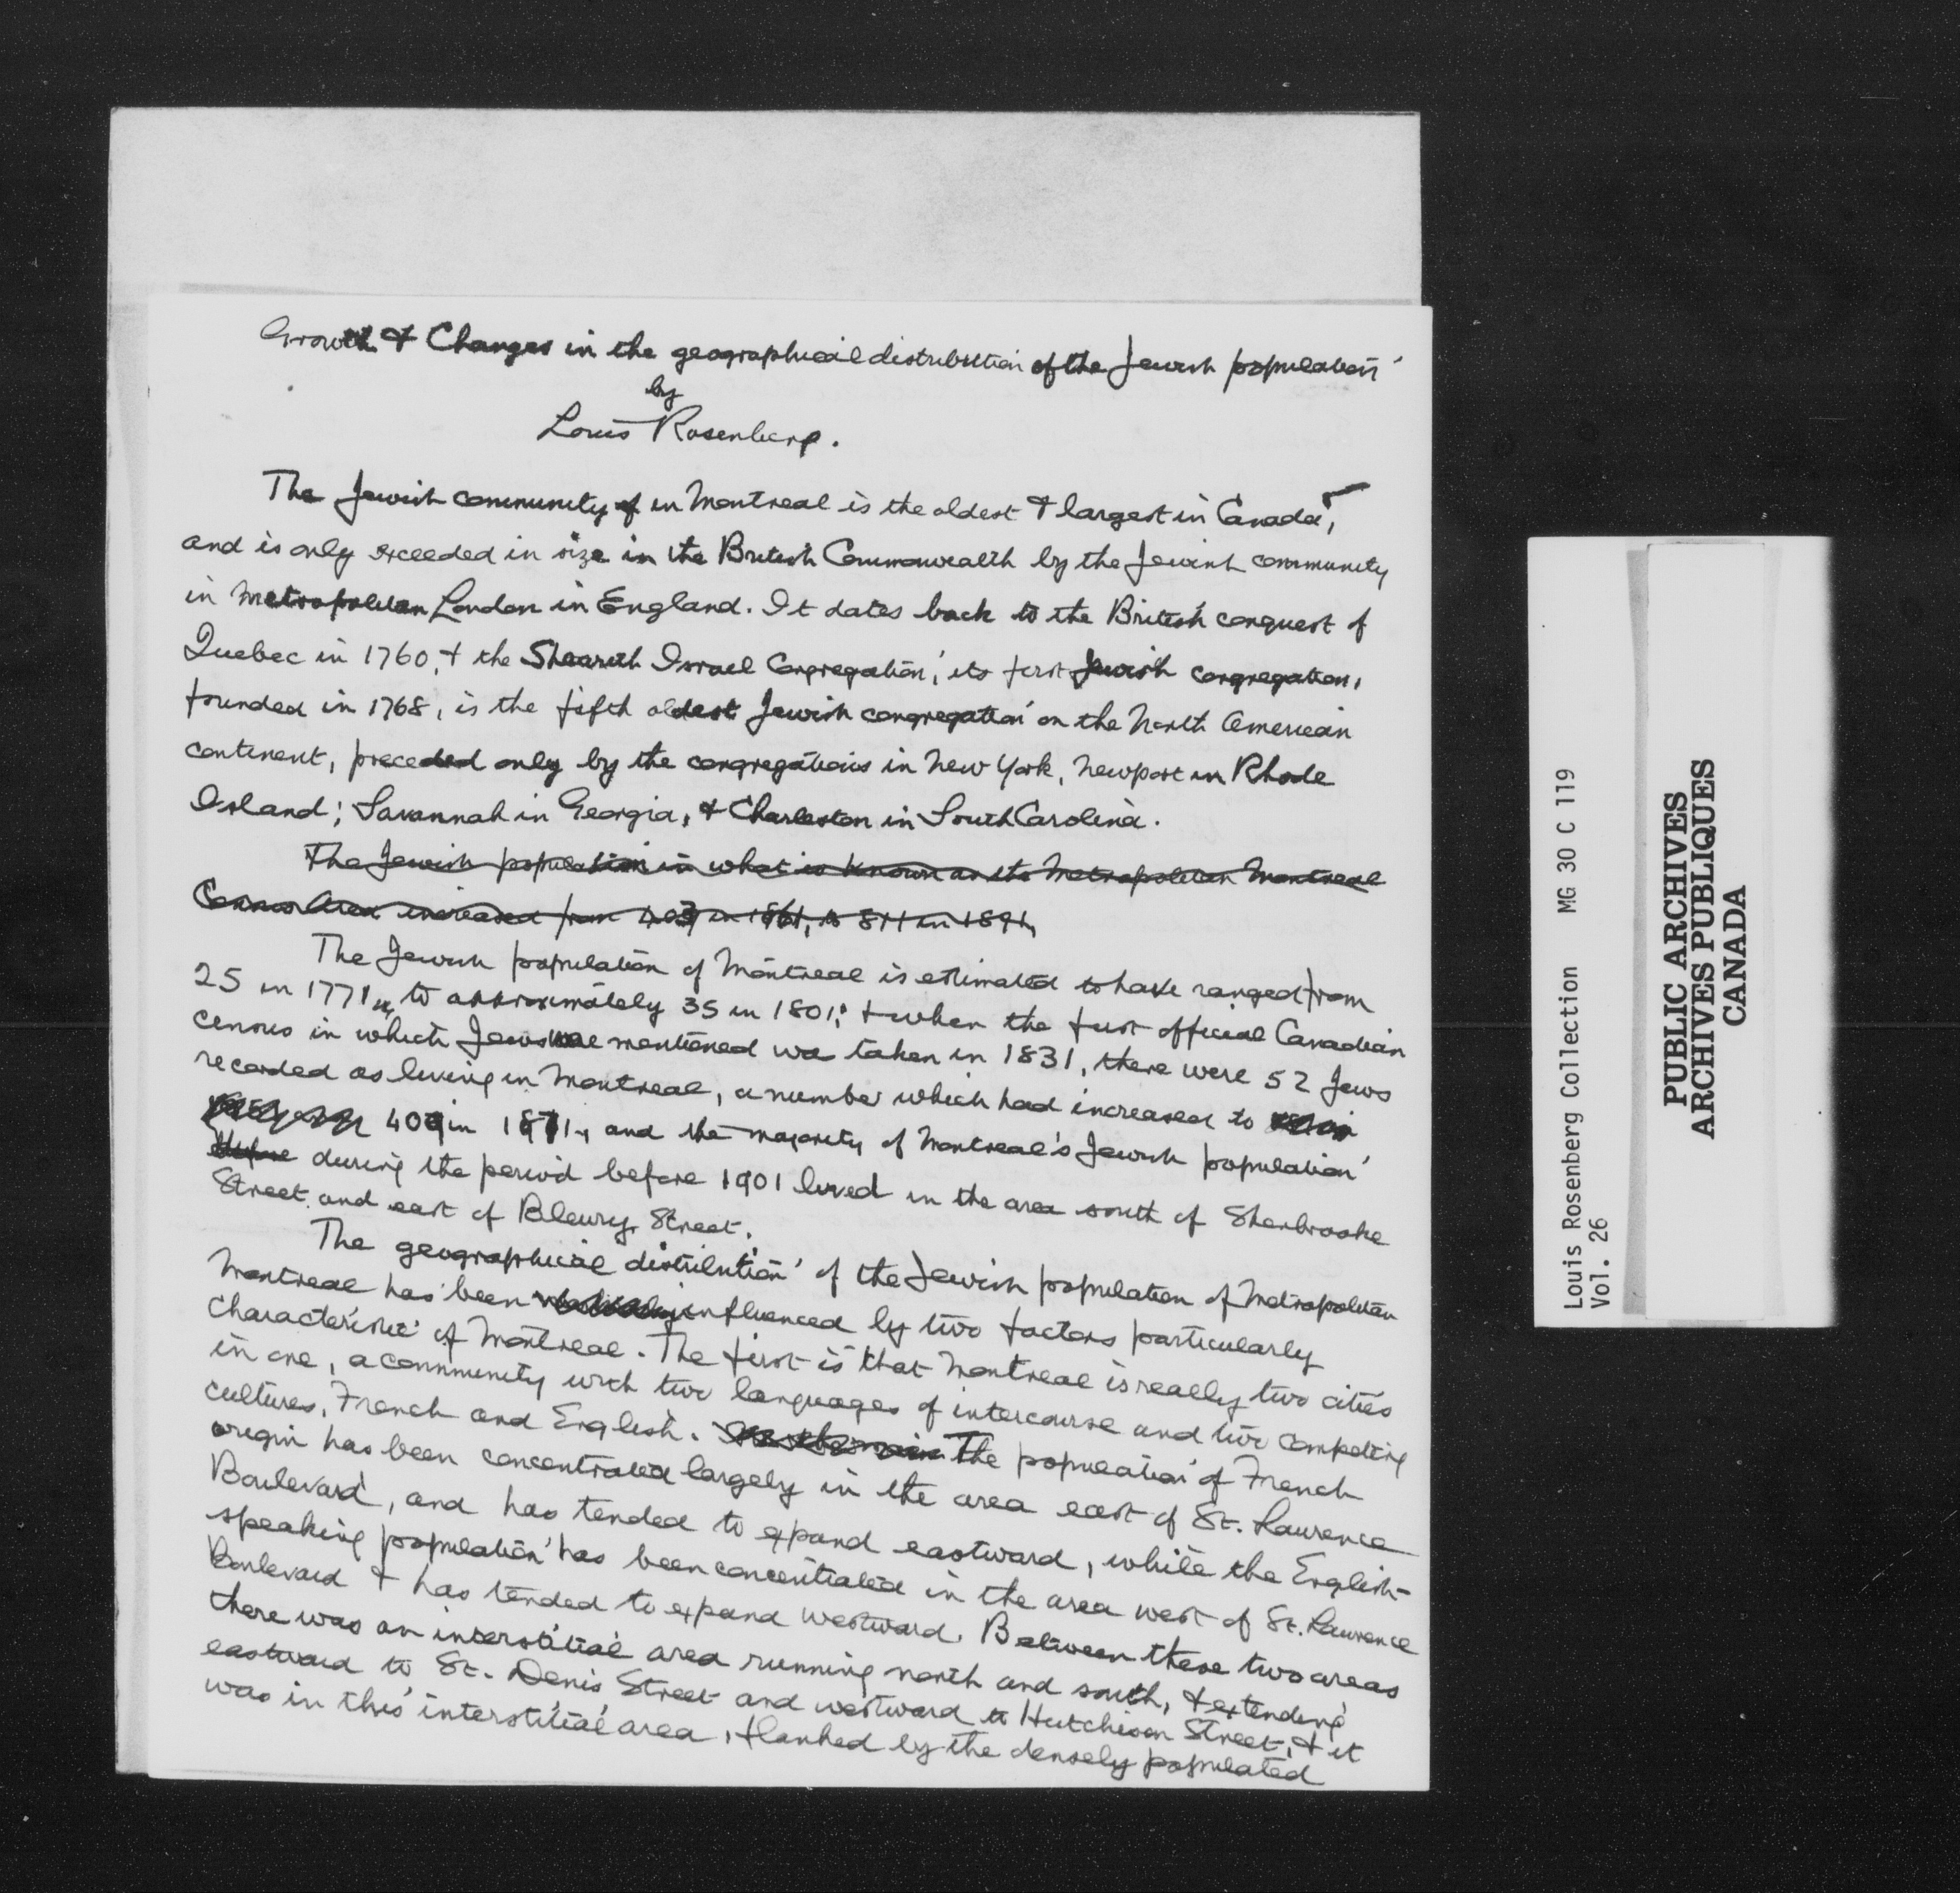 Growth & Changes in the geographical distribution of the Jewish population
by
Louis Rosenberg.
The Jewish community of in Montreal is the oldest & largest in Canada,
and is only exceeded in size in the British Commonwealth by the Jewish community
in Metropolitan London in England. It dates back to the British conquest of
Quebec in 1760, & the Shearith Israel Congregation, its first Jewish congregation,
founded in 1768, is the fifth oldest Jewish congregation on the North American
continent, preceded only by the congregations in New York, Newport in Rhode
Island; Savannah in Georgia, & Charleston in South Carolina.
The Jewish population in what is known as the Metropolitan Montreal
Census Area increased from 403 in 1861, to 811 in 1891,
The Jewish population of Montreal is estimated to have ranged from
25 in 1771, to approximately 35 in 1801; & when the first official Canadian
census in which Jews were mentioned was taken in 1831, there were 52 Jews
recorded as living in Montreal, a number which had increased to
409 in 1871, and the majority of Montreal's Jewish population
before during the period before 1901 lived in the area south of Sherbrooke
Street and east of Bleury Street.
The geographical distribution of the Jewish population of Metropolitan
Montreal has been influenced by two factors particularly
characteristic of Montreal. The first is that Montreal is really two cities
in one, a community with two languages of intercourse and two competing
cultures, French and English. The population of French
origin has been concentrated largely in the area east of St. Lawrence
Boulevard, and has tended to expand eastward, while the English-
speaking population has been concentrated in the area west of St. Lawrence
Boulevard & has tended to expand westward. Between these two areas
there was an interstitial area running north and south, & extending
eastward to St. Denis Street and westward to Hutchison Street, & it
was in this interstitial area, flanked by the densely populated
Louis Rosenberg Collection MG 30 C 119
Vol. 26
PUBLIC ARCHIVES
ARCHIVES PUBLIQUES
CANADA